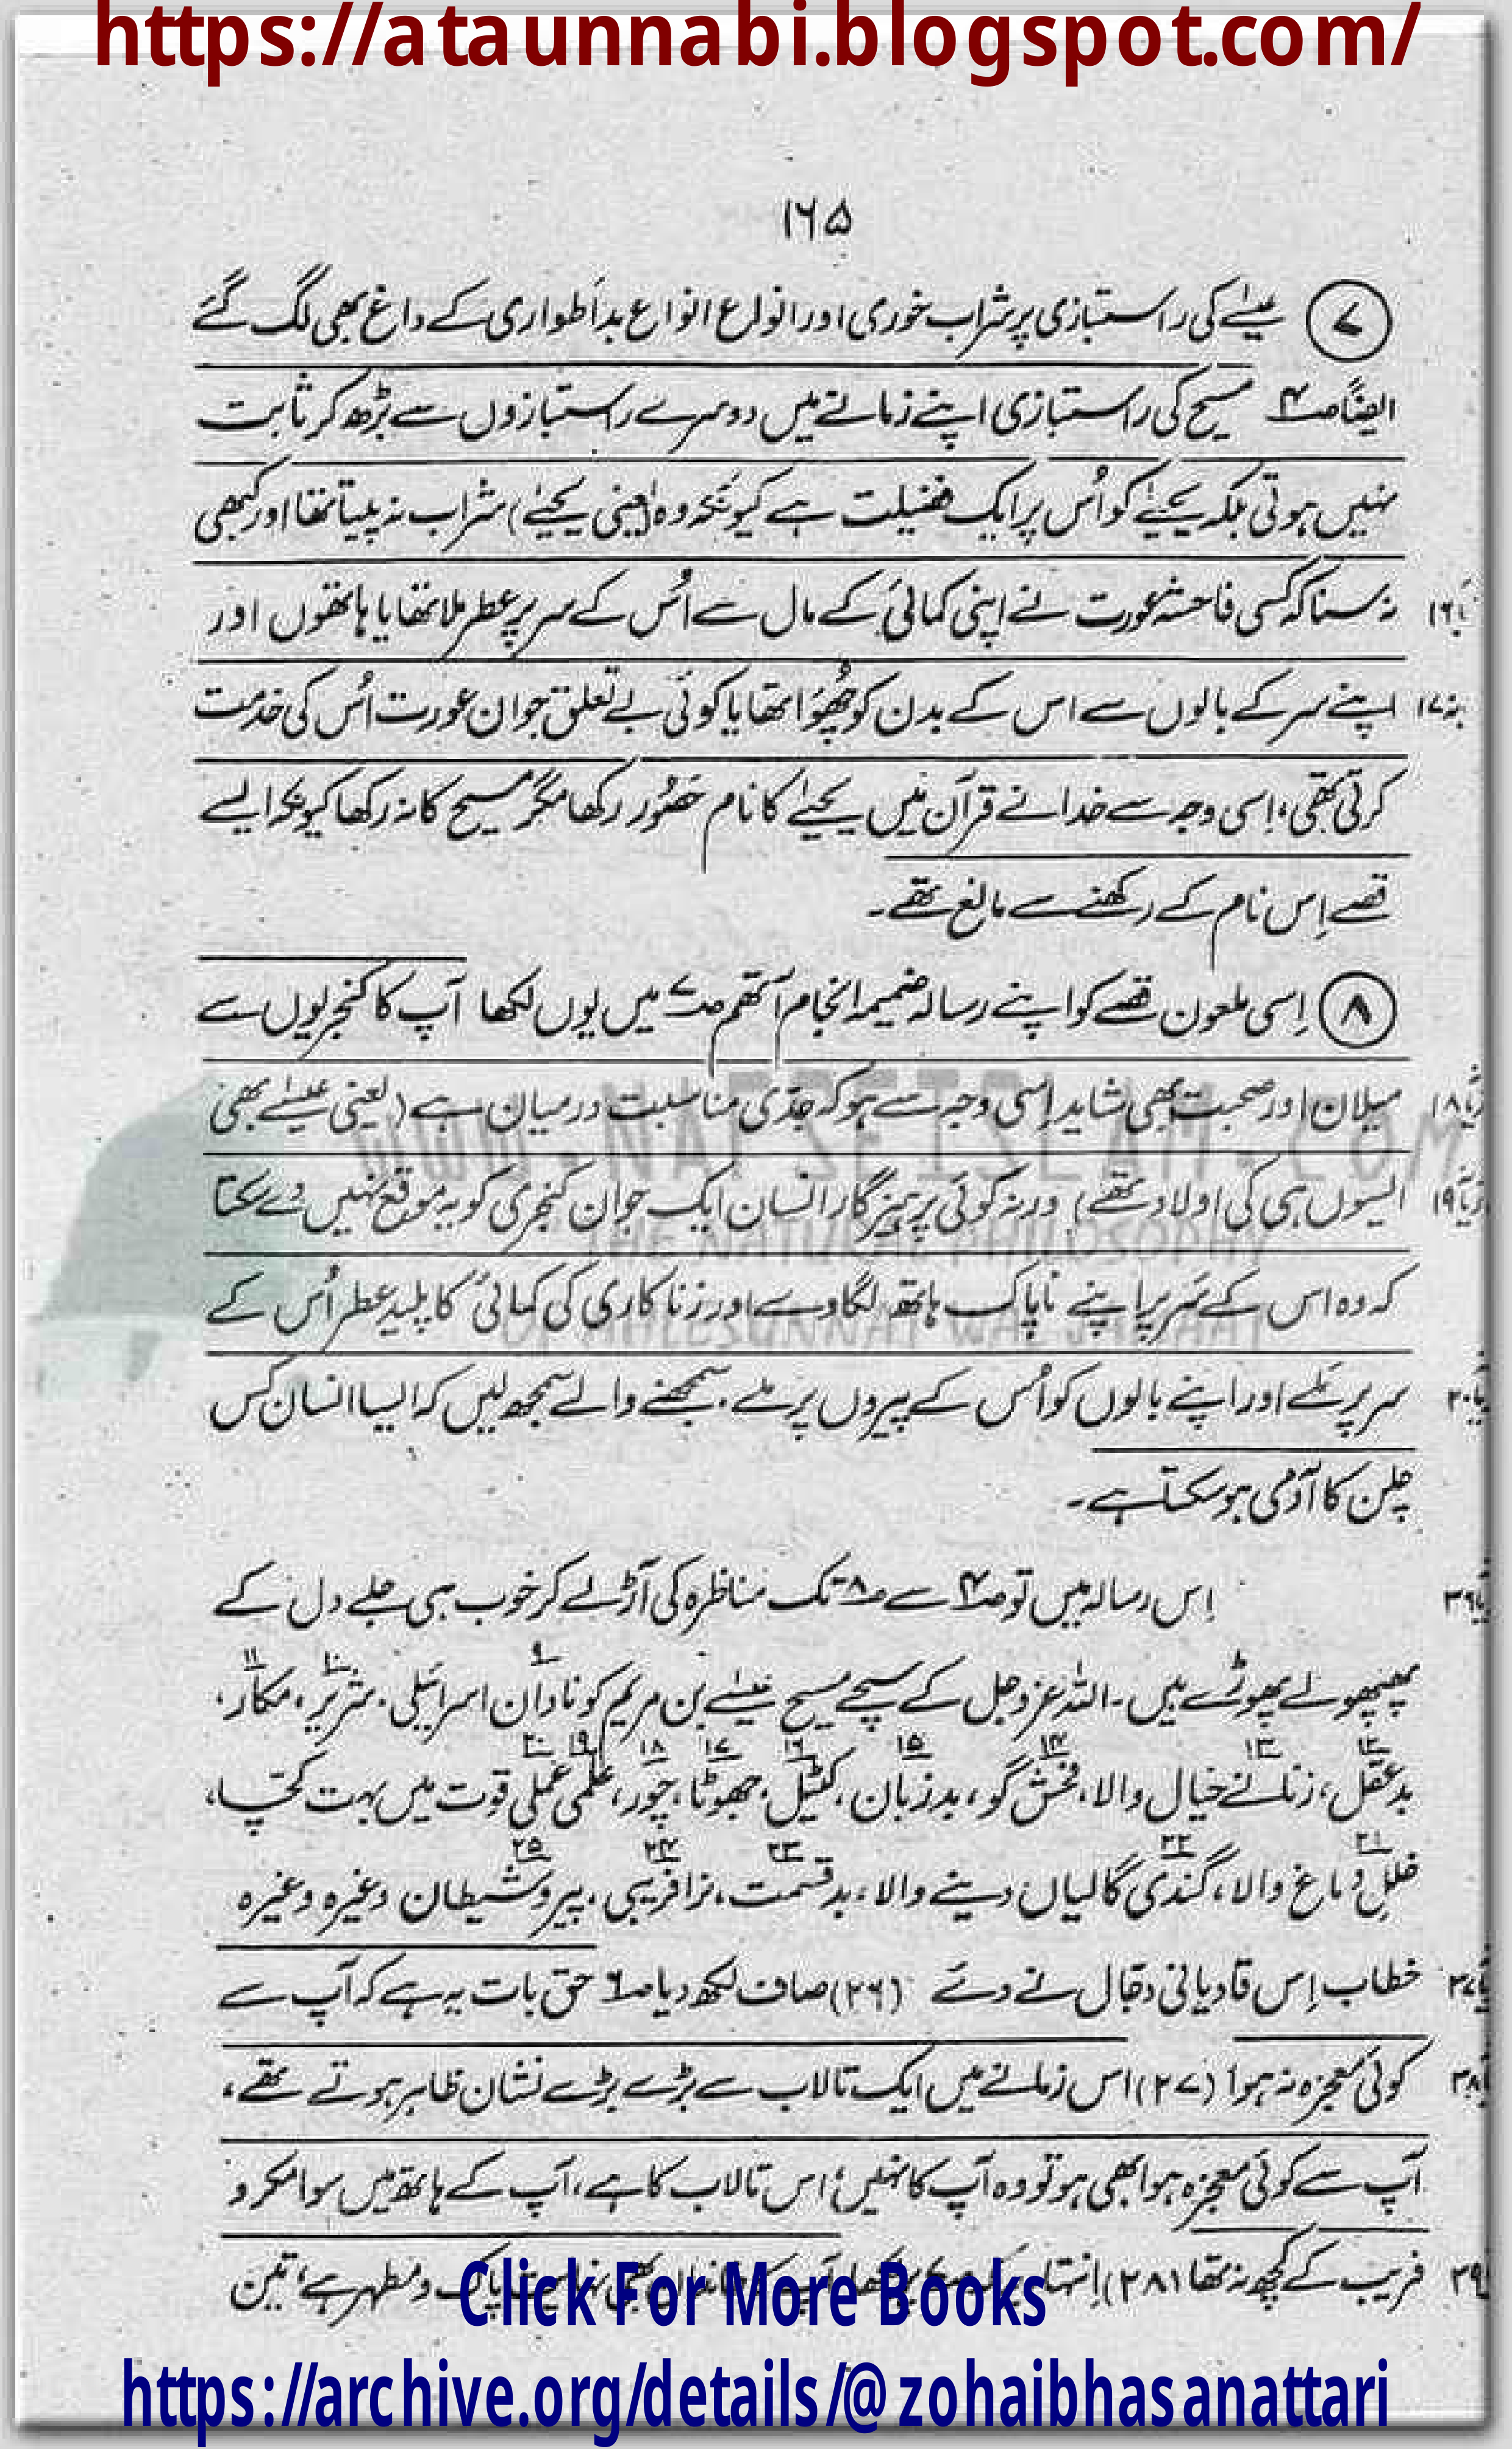 https://ataunnabi.blogspot.com/
۱۶۵
۷ عیسٰے کی راستبازی پر شراب خوری اور انواع انواع بداَطواری کے داغ بھی لگ گئے
ایضًا ص۴ مسیح کی راستبازی اپنے زمانے میں دوسرے راستبازوں سے بڑھ کر ثابت
نہیں ہوتی بلکہ یحیٰے کو اُس پر ایک فضیلت ہے کیونکہ وہ (یعنی یحیٰے) شراب نہ پیتا تھا اور کبھی
نہ سنا کہ کسی فاحشہ عورت نے اپنی کمائی کے مال سے اُس کے سر پر عطر ملا تھا یا ہاتھوں اور
اپنے سر کے بالوں سے اس کے بدن کو چُھوَا تھا یا کوئی بے تعلق جوان عورت اُس کی خدمت
کرتی تھی، اِسی وجہ سے خدا نے قرآن میں یحیٰے کا نام حَصُور رکھا مگر مسیح کا نہ رکھا کیونکہ ایسے
قصے اِس نام کے رکھنے سے مانع تھے۔
۸ اِسی ملعون قصے کو اپنے رسالہ ضمیمہ انجام آتھم ص۷ میں یوں لکھا آپ کا کنجریوں سے
میلان اور صحبت بھی شاید اِسی وجہ سے ہو کہ جدّی مناسبت درمیان ہے (یعنی عیسٰے بھی
ایسوں ہی کی اولاد تھے) ورنہ کوئی پرہیزگار انسان ایک جوان کنجری کو یہ موقع نہیں دے سکتا
کہ وہ اس کے سَر پر اپنے ناپاک ہاتھ لگاوے اور زناکاری کی کمائی کا پلید عطر اُس کے
سر پر مَلے اور اپنے بالوں کو اُس کے پیروں پر ملے۔ سمجھنے والے سمجھ لیں کہ ایسا انسان کس
چلن کا آدمی ہوسکتا ہے۔
اِس رسالہ میں تو ص۴ سے ص۸ تک مناظرہ کی آڑ لے کر خوب ہی جلے دل کے
پھپھولے پھوڑے ہیں۔ اللہ عزوجل کے سچے مسیح عیسٰے بن مریم کو نادان۹ اسرائیلی، شریر۱۰، مکار۱۱،
بدعقل۱۲، زنانے خیال۱۳ والا، فحش گو۱۴، بدزبان۱۵، کٹیل۱۶، جھوٹا۱۷، چور۱۸، علمی۱۹ عملی۲۰ قوت میں بہت کچّا،
خللِ دماغ۲۱ والا، گندی۲۲ گالیاں دینے والا، بدقسمت۲۳، نرا فریبی۲۴، پیرو شیطان۲۵ وغیرہ وغیرہ
خطاب اِس قادیانی دجّال نے دئے (۲۶) صاف لکھ دیا ص۶ حق بات یہ ہے کہ آپ سے
کوئی معجزہ نہ ہوا (۲۷) اس زمانے میں ایک تالاب سے بڑے بڑے نشان ظاہر ہوتے تھے،
آپ سے کوئی معجزہ ہوا بھی ہو تو وہ آپ کا نہیں؛ اس تالاب کا ہے، آپ کے ہاتھ میں سوا مکر و
فریب کے کچھ نہ تھا (۲۸) اِنتہا پاک و مطہر ہے، تین
Click For More Books
https://archive.org/details/@zohaibhasanattari
WWW.NAFSEISLAM.COM
THE NATURAL PHILOSOPHY
OF AHLESUNNAT WAL JAMAAT